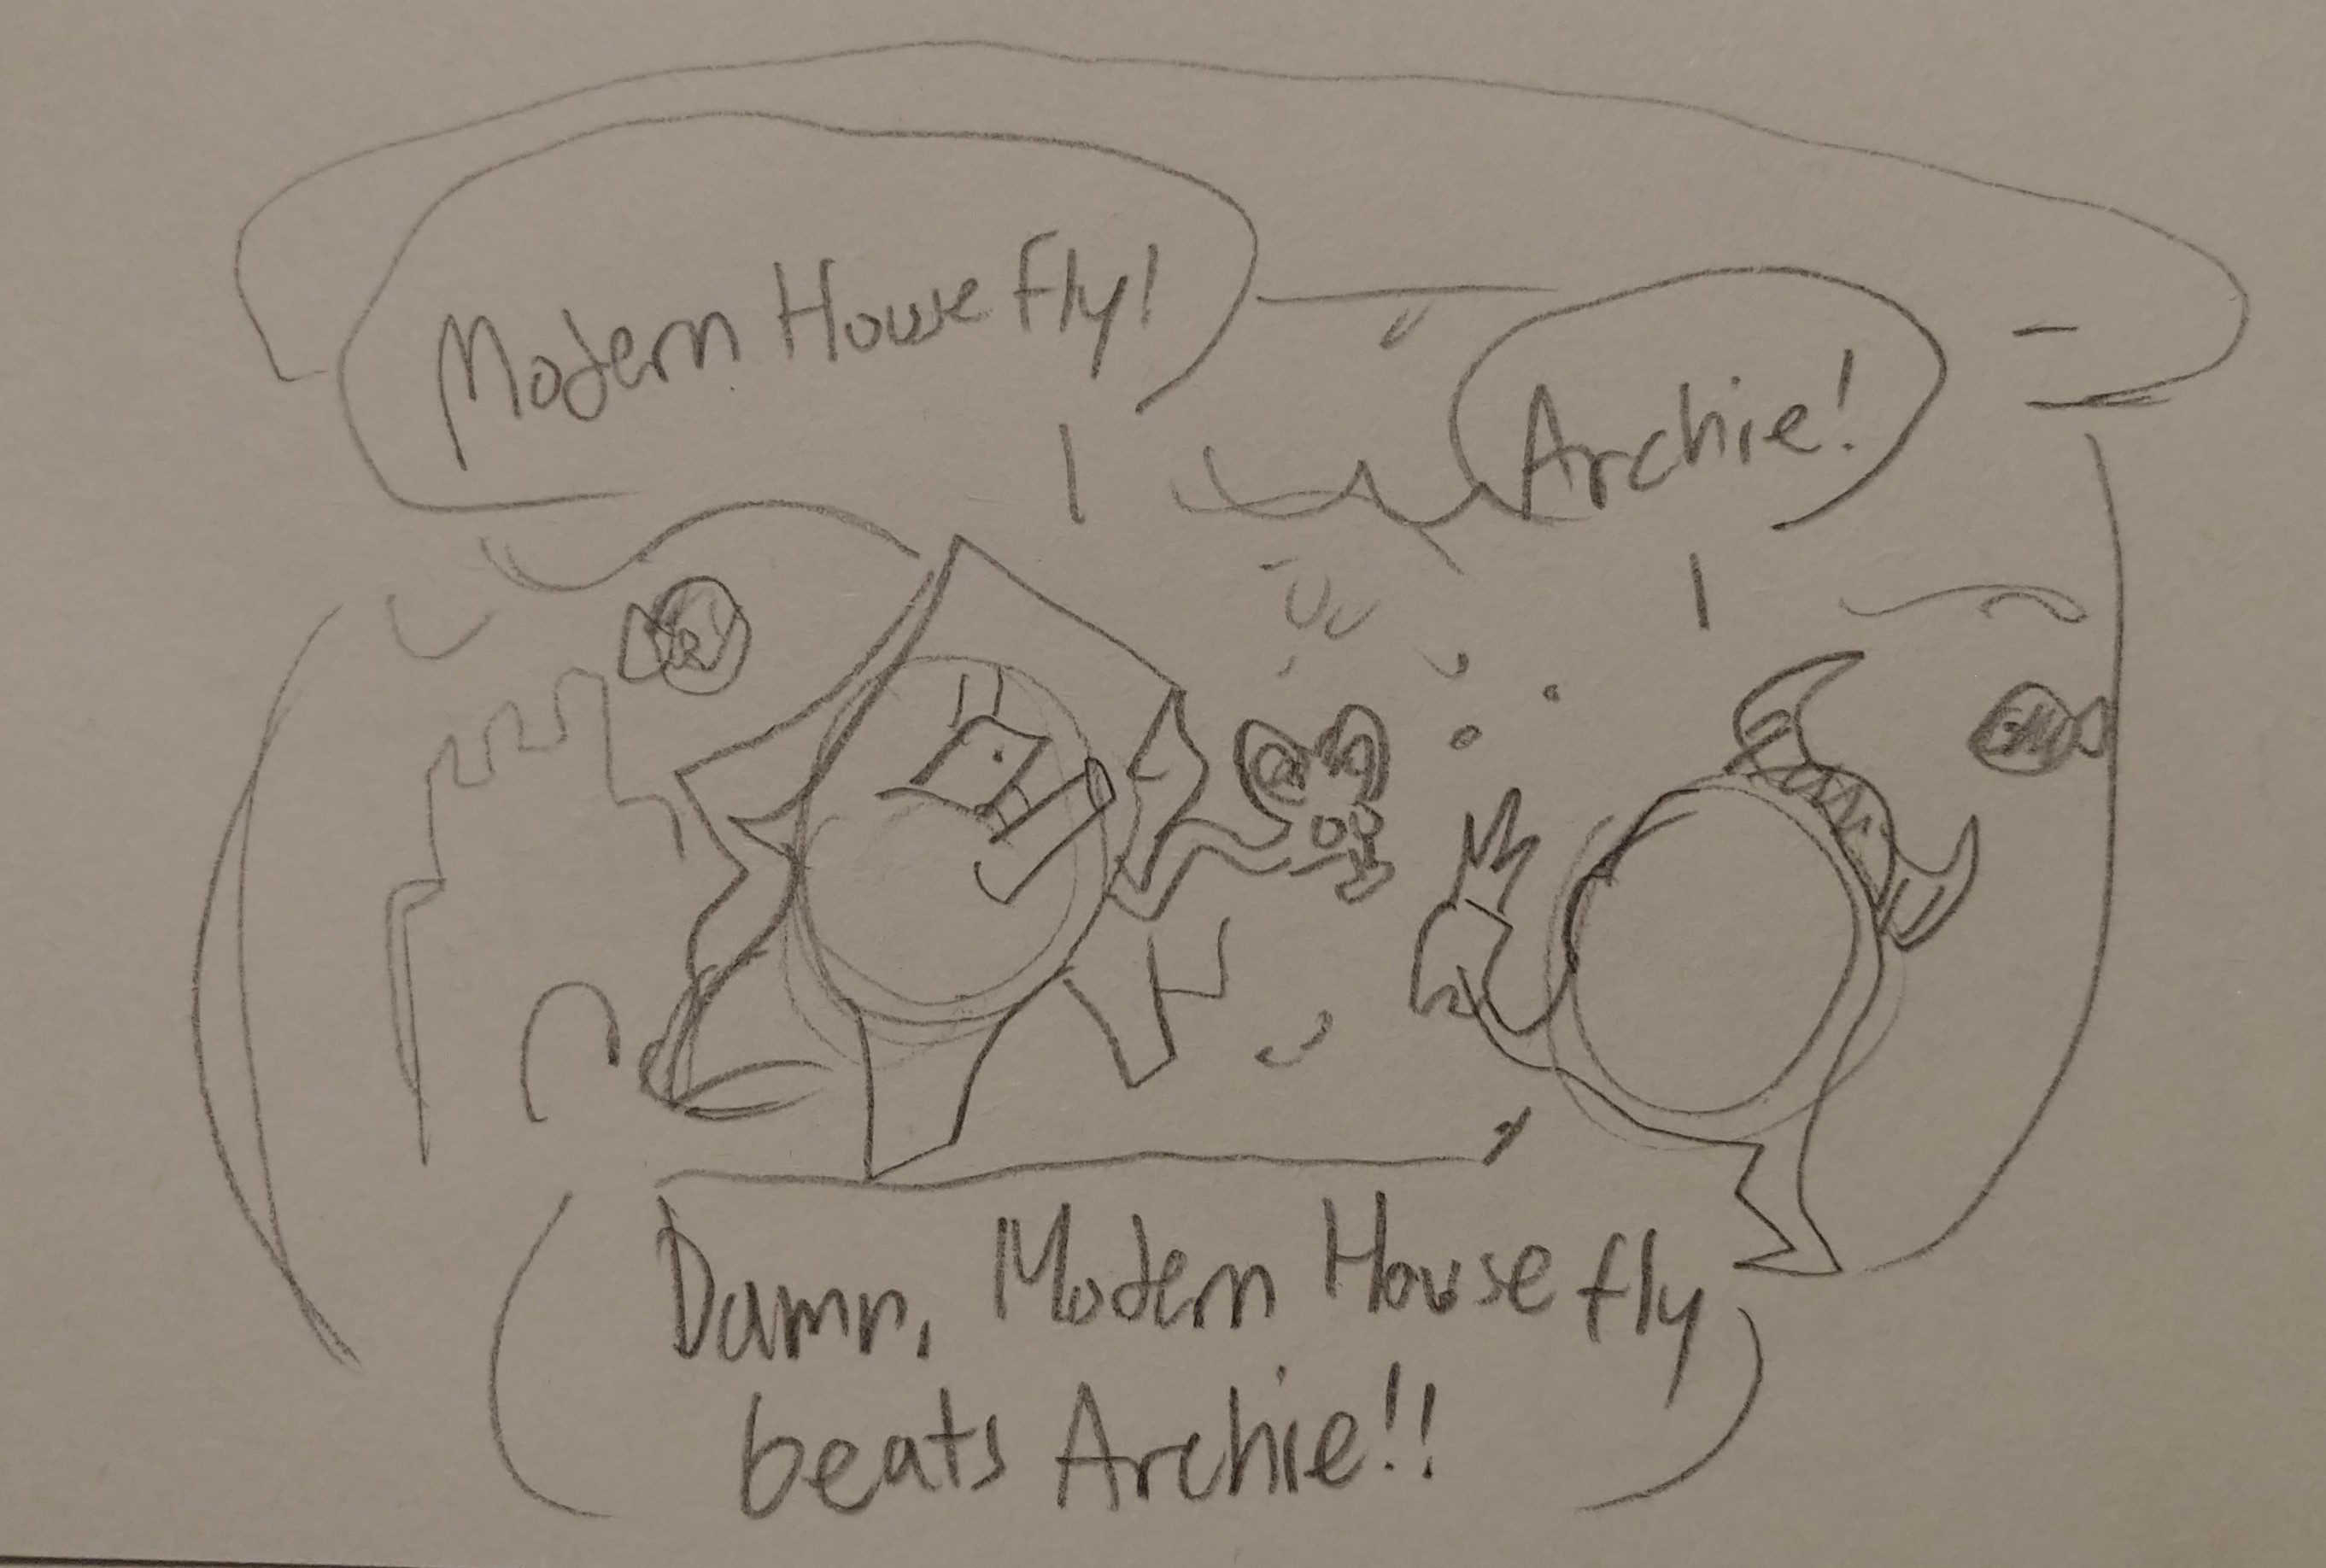 Modern House fly!
Archie!
Damn, Modern House fly
beats Archie!!